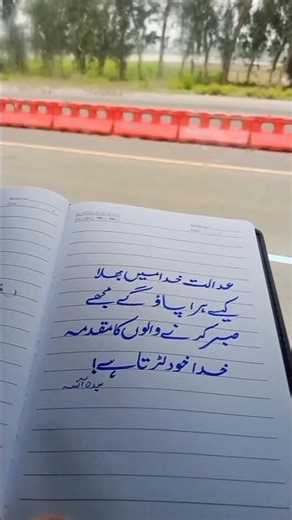 عدالت خدا میں بھلا
کیسے ہرا پاؤ گے مجھے
صبر کرنے والوں کا مقدمہ
خدا خود لڑتا ہے!